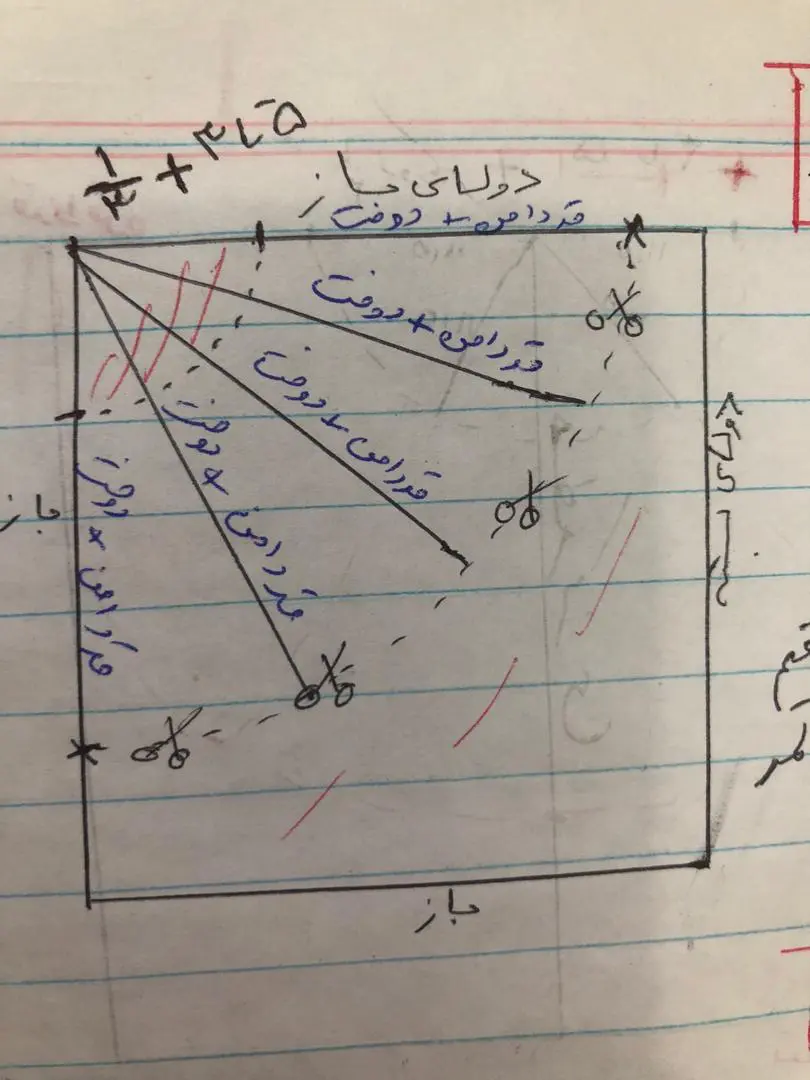 ۱/۳ + ۳ تا ۵
دولای باز
قد دامن + دوخت
قد دامن + دوخت
قد دامن + دوخت
قد دامن + دوخت
قد دامن + دوخت
باز
باز